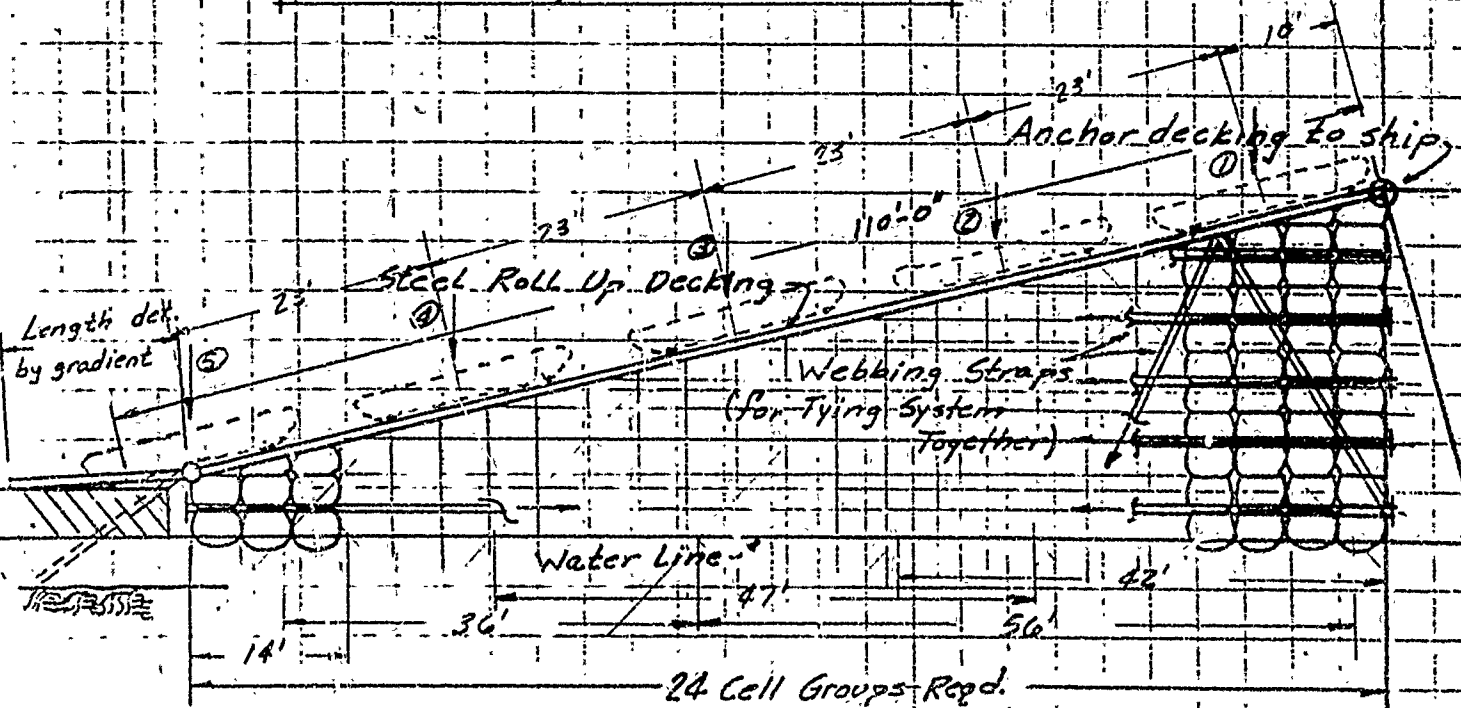 10'
23'
Anchor decking to ship
23'
①
110'-0"
②
23'
③
Steel Roll Up Decking
23'
④
Length det.
by gradient
⑤
Webbing Straps
(for Tying System
Together)
Water Line
42'
47'
36'
56'
14'
24 Cell Groups Reqd.